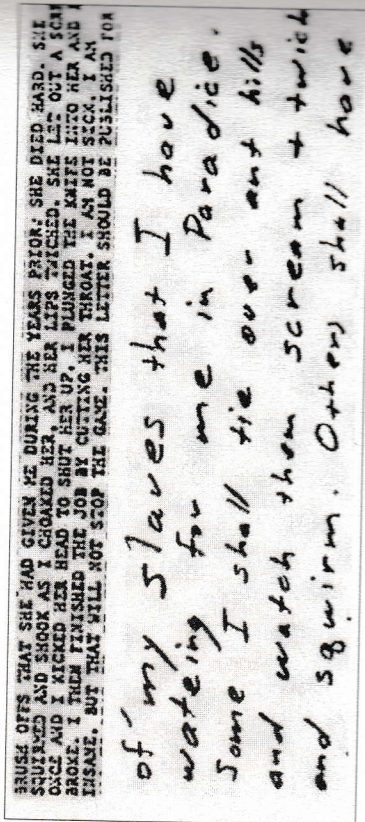 BRUSH OFFS THAT SHE HAD GIVEN ME DURING THE YEARS PRIOR. SHE DIED HARD. SHE
SQUIRMED AND SHOOK AS I CHOAKED HER, AND HER LIPS TWICHED. SHE LET OUT A SCR
ONCE AND I KICKED HER HEAD TO SHUT HER UP. I PLUNGED THE KNIFE INTO HER AND
BROKE. I THEN FINISHED THE JOB BY CUTTING HER THROAT. I AM NOT SICK. I AM
INSANE. BUT THAT WILL NOT STOP THE GAME. THIS LETTER SHOULD BE PUBLISHED FOR
of my slaves that I have
wateing for me in Paradice.
Some I shall tie over ant hills
and watch them scream + twich
and squirm. Others shall have